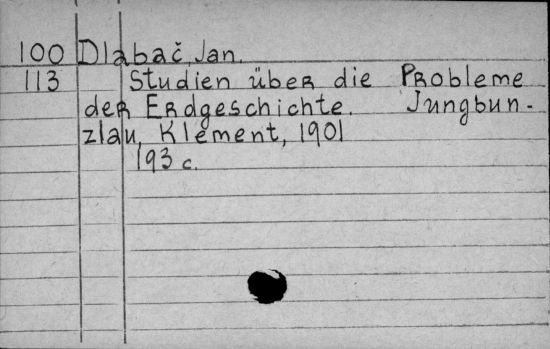 100 Dlabač, Jan.
113 Studien über die Probleme
der Erdgeschichte. Jungbun-
zlau, Klement, 1901
193 c.